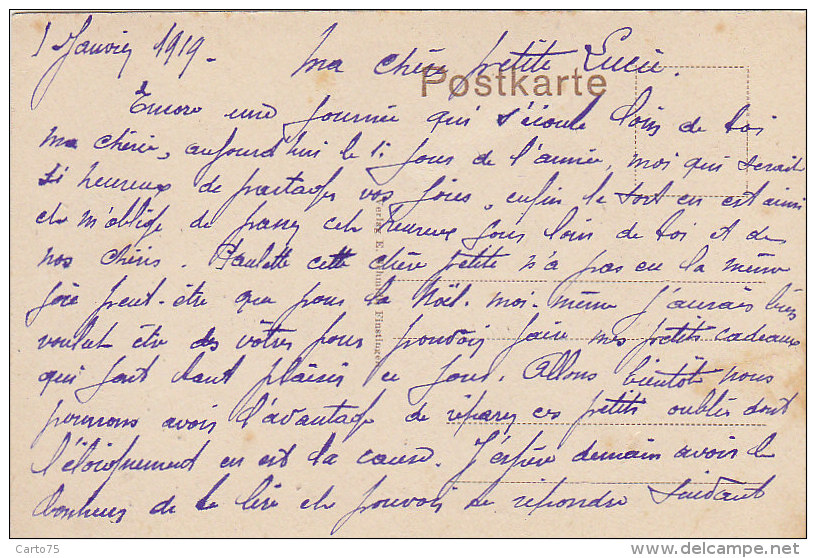 1 Janvier 1919 -
Ma chère petite Lucie.
Postkarte
Encore une journée qui s'écoule loin de toi
ma chérie, aujourd'hui le 1. jour de l'année, moi qui serait
si heureux de partager vos joies, enfin le sort en est ainsi
et m'oblige de passer cet heureux jour loin de toi et de
nos chéris. Paulette cette chère petite n'a pas eu la même
joie peut-être que pour la Noël. moi-même j'aurais bien
voulut être des vôtres pour pouvoir faire mes petits cadeaux
qui font tant plaisir ce jour. Allons bientôt nous
pourrons avoir l'avantage de réparer ces petits oublis dont
l'éloignement en est la cause. J'espère demain avoir le
bonheur de te lire et pouvoir te répondre suivant
Verlag E. Finstingen
Carto75
© delcampe.net